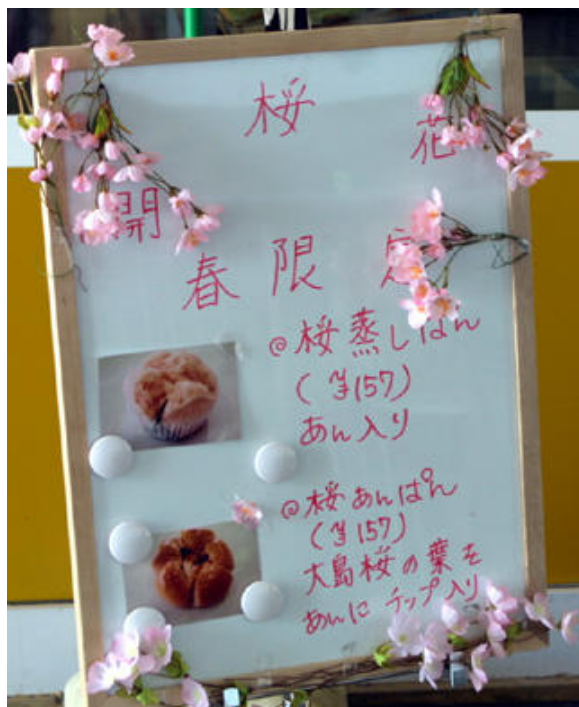 桜 花
開
春限定
@桜蒸しぱん
(¥157)
あん入り
@桜あんぱん
(¥157)
大島桜の葉を
あんにチップ入り